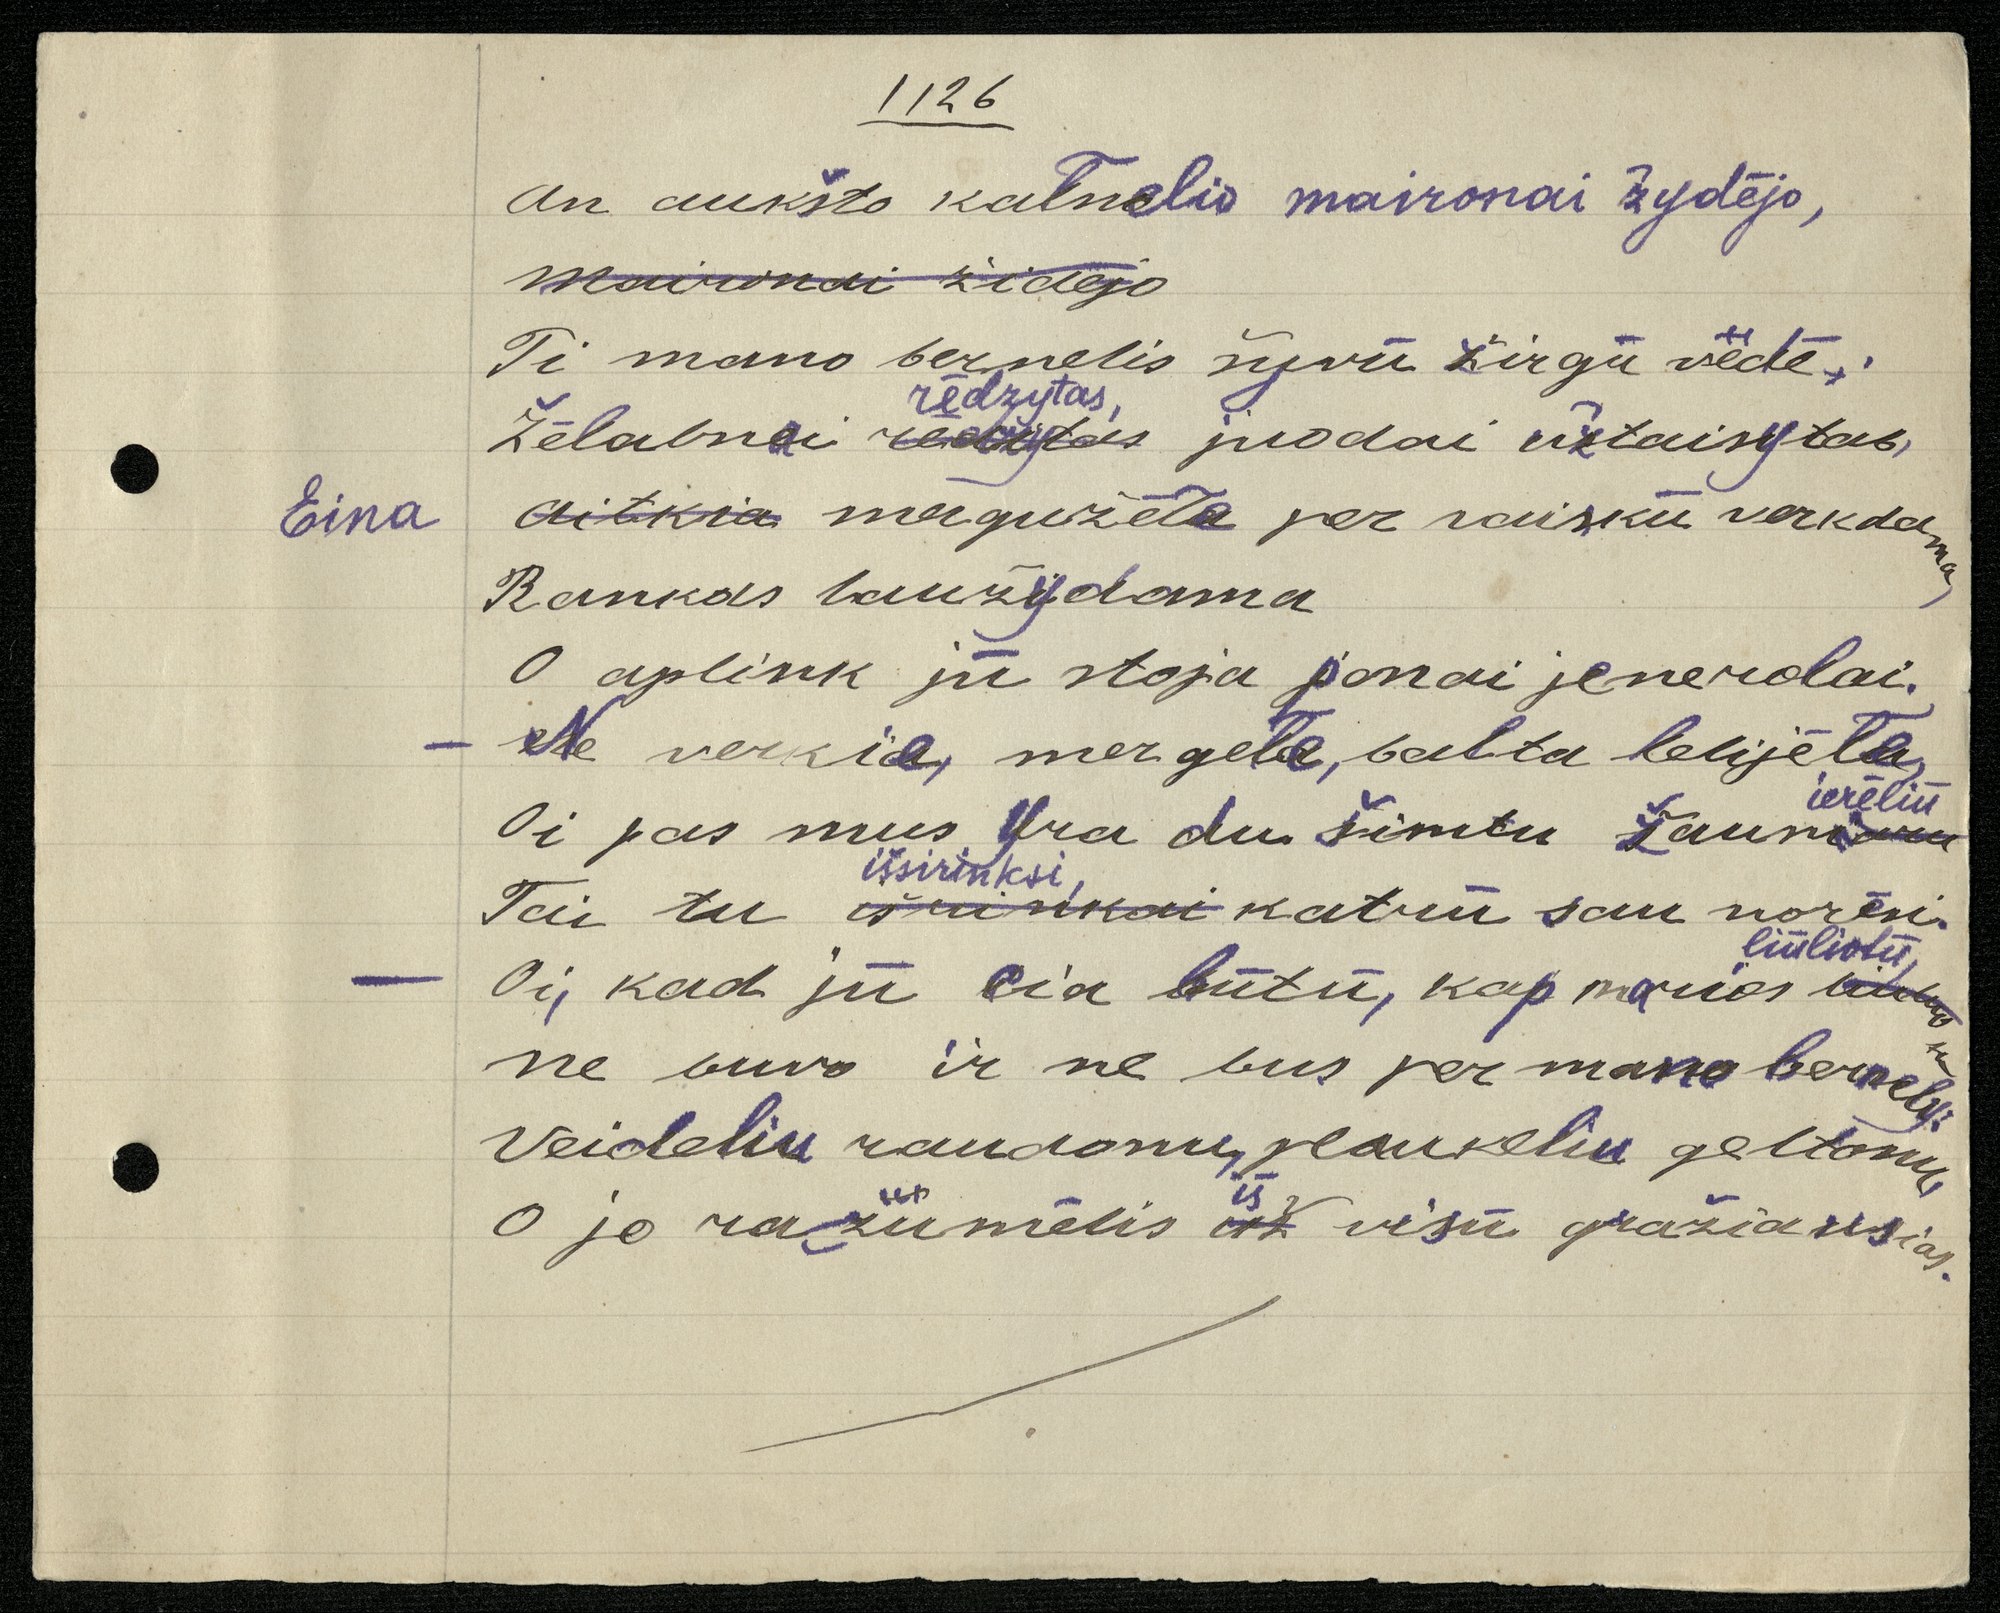 1126
An aukšto kalnelio maironai žydėjo,
maironai židėjo
Ti mano bernelis šyvū žirgū vėdė,
rėdzytas,
Žėlabnai juodai ūžtaisytas,
Eina aitkia mergužėla per vaiskū verkdama,
Rankas laužydama
O aplink jū stoja ponai jenerolai.
— Ne verkie, mergele, balta lelijėle,
ierėliū
Oi pas mus yra du šimtu žaunierėliū
išsirinksi,
Tai tu išrinkai katrū sau norėsi.
liūliotū,
— Oi, kad jū cia būtū, kap marios
ne buvo ir ne bus per mano bernelį:
Veideliu raudonu, plaukeliu geltonu,
iš
O jo razūmėlis už visū gražiausias.